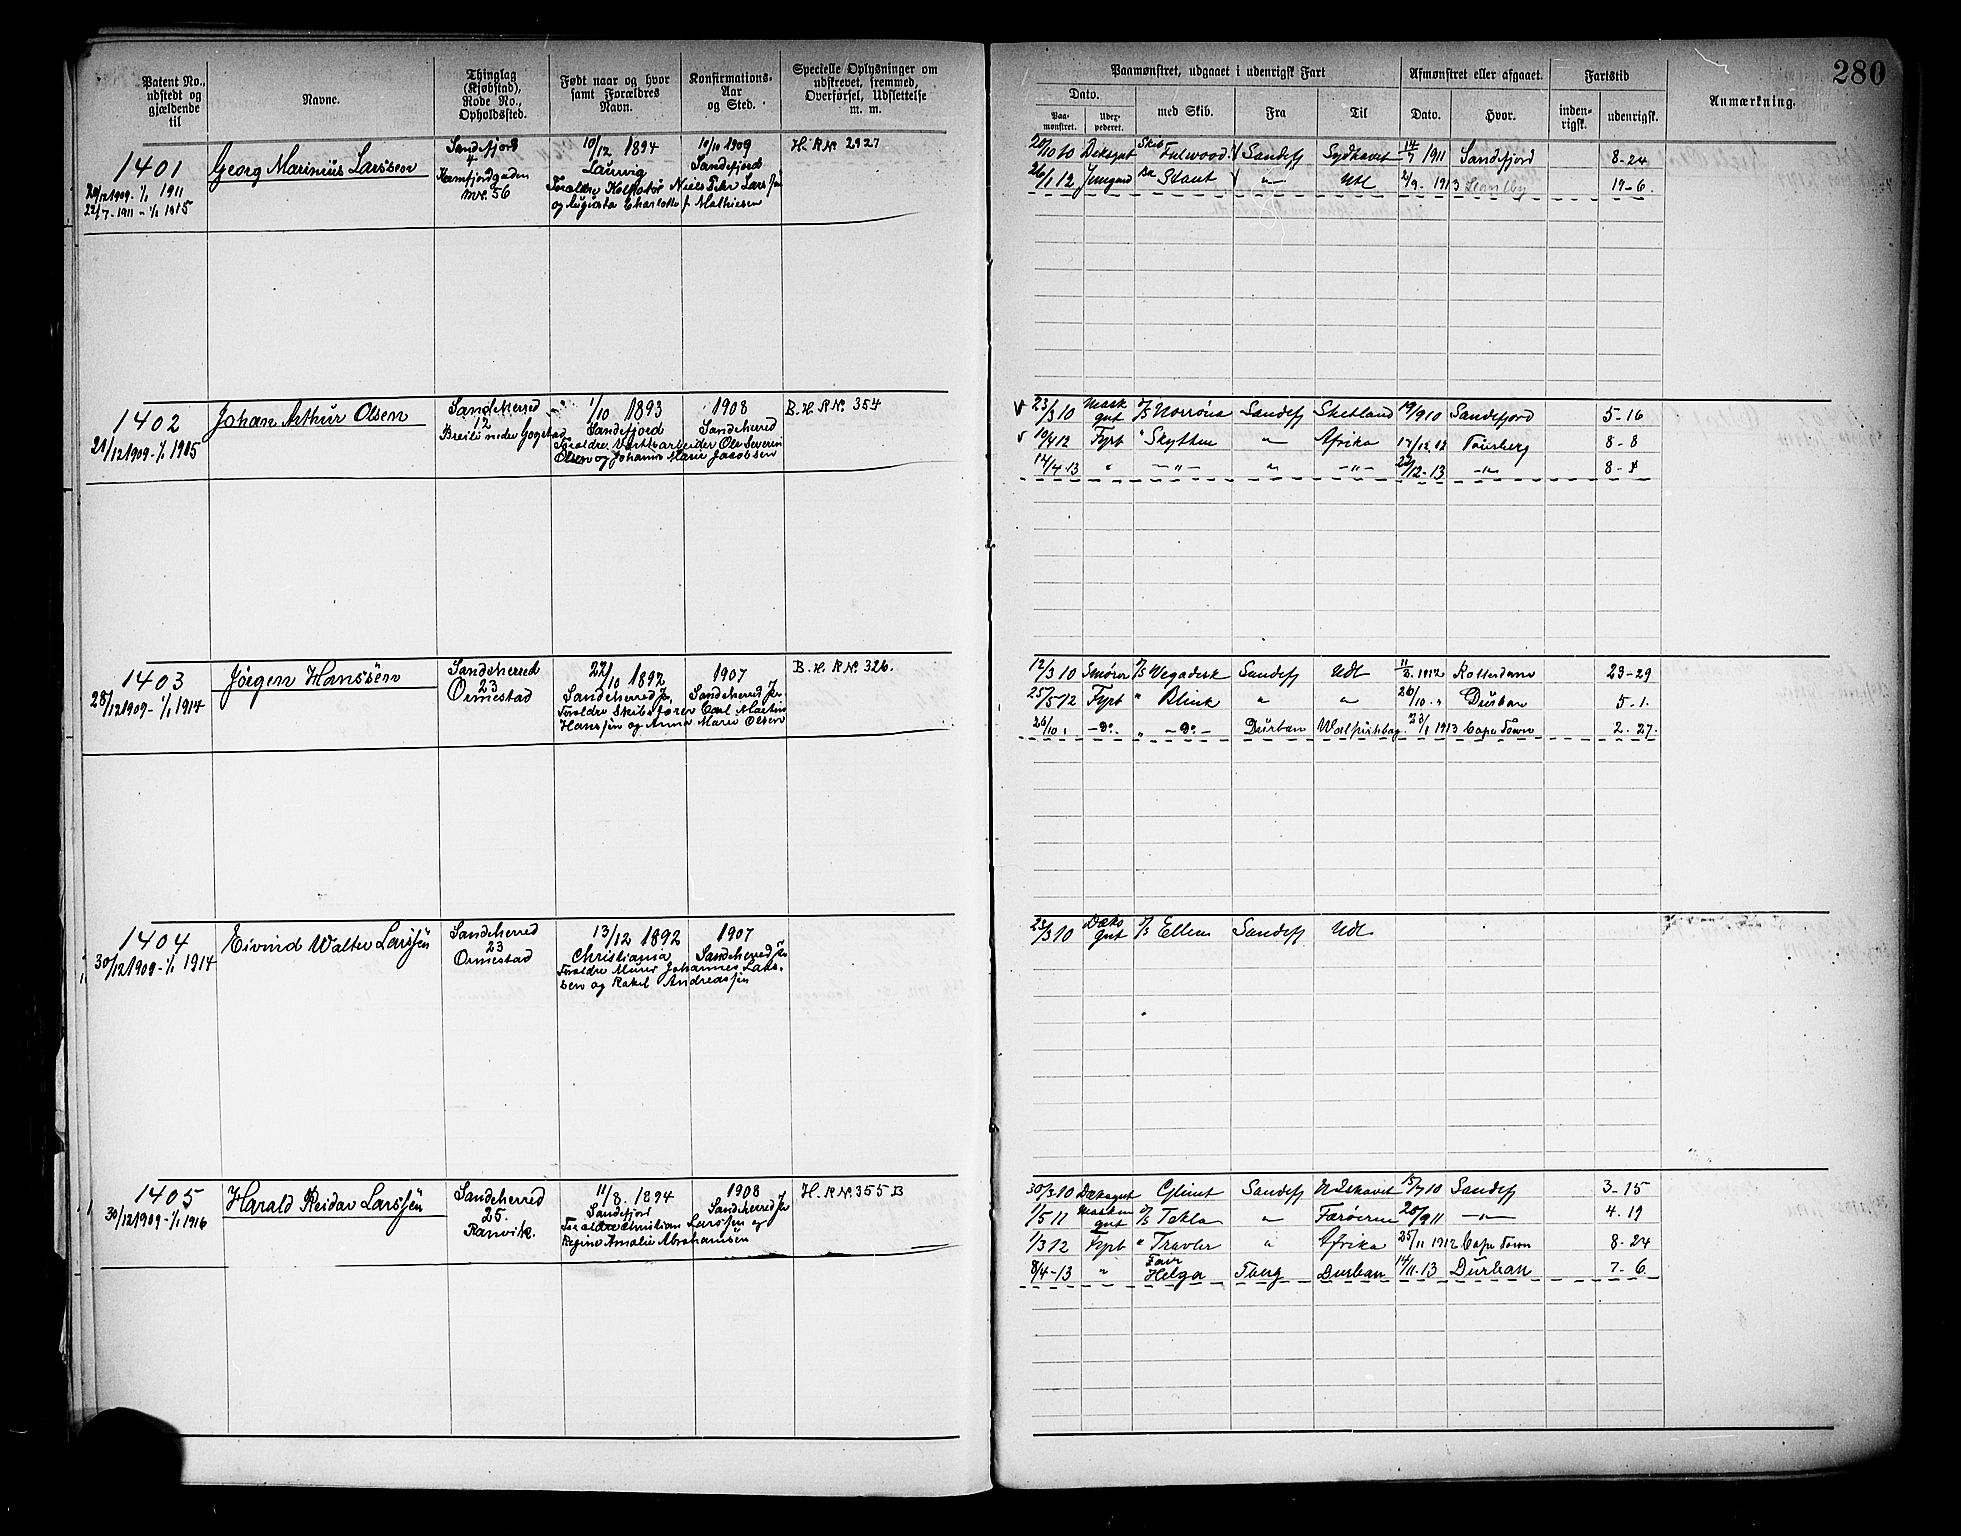 280
Patent No., udstedt og gjældende til
Navne.
Thinglag (Kjøbstad), Rode No., Opholdssted.
Født naar og hvor samt Forældres Navn.
Konfirmations-Aar og Sted.
Specielle Oplysninger om udskrevet, fremmed, Overførsel, Udslettelse m. m.
Paamønstret, udgaaet i udenrigsk Fart
Dato.
Paamønstret.
Uderpederet.
med Skib.
Fra
Til
Afmønstret eller afgaaet.
Dato.
Hvor.
Fartstid
indenrigsk.
udenrigsk.
Anmærkning.
1401
Georg Marinius Larssen
Sandefjord
4
Kamfjordgaden
nr. 56
10/12 1894
Laurvig
10/10 1909
Sandefjord
Forældre Niels Peter Larssen
og Augusta Charlotte f. Mathiesen
H. R No. 2927
22/7-1911 - 1/1 1915
20/10 10 Dæksgut Skib Fulwood Sandefj Sydhavet 14/7 1911 Sandefjord 8-24
26/1 12 Staut " Udl 2/9. 1913 19-6.
1402
21/12 1909 - 1/1 1915
Johan Arthur Olsen
Sandeherred
12
nedre Gogstad
1/10 1893
Sandefjord
1908
Sandeherred
Forældre Værftsarbeider Ole Severin
Olsen og Johanne Marie Jacobsen
B. H. R No. 354
V 23/3 10 Mask gut D/S Norröna Sandefj Shetland 19/9 10 Sandefjord 5-16
19/4 12 Fyrb " Skytten " Afrika 17/12. 12 Tönsberg 8-8
14/4-13 " -"- " -"- 22/12-13 -"- 8-
1403
28/12 1909 - 1/1 1914
Jörgen Hanssen
Sandeherred
23
Ormestad
22/10 1892
Sandeherred Pr.
1907
Sandeherred Pr.
Forældre Skibsfører Carl Martin
Hanssen og Anna Marie Olsen
B. H. R No. 326.
12/3 10 Smører D/S Vegadesk Sandefj Udl 11/2. 1912 Rotterdam 23-29
25/5-12 Fyrb " Blink " " 26/10. " Durban 5-1.
26/10. - do - " - do - Durban Walfishbay 23/1 1913 Cape Town 2-27.
1404
30/12 1909 - 1/1 1914
Eivind Walter Larssen
Sandeherred
23
Ormestad
13/12 1892
Christiania
1907
Sandeherred Pr.
Forældre Murer Johannes Lars-
sen og Rakel Andreassen
23/3 10 Dæks gut D/S Ellen Sandefj Udl
1405
30/12 1909 - 1/1 1916
Harald Reidar Larssen
Sandeherred
25.
Ranvik.
11/8. 1894
Sandefjord
1908
Sandeherred Pr
Forældre Christian Larssen og
Regine Amalie Abrahamsen
H. R No. 355 B
30/3 10 Dæksgut Glimt Sandefj N Ishavet 15/7 10 Sandefj 3-15
1/5 11 Maskin gut D/S Tekla " Færøerne 20/9 11 -"- 4. 19
1/3 12 Fyrb " Travler " Afrika 25/11 1912 Cape Town 8-24
8/4-13 " Fair Helga Tberg Durban 14/11. 13 Durban 7-6